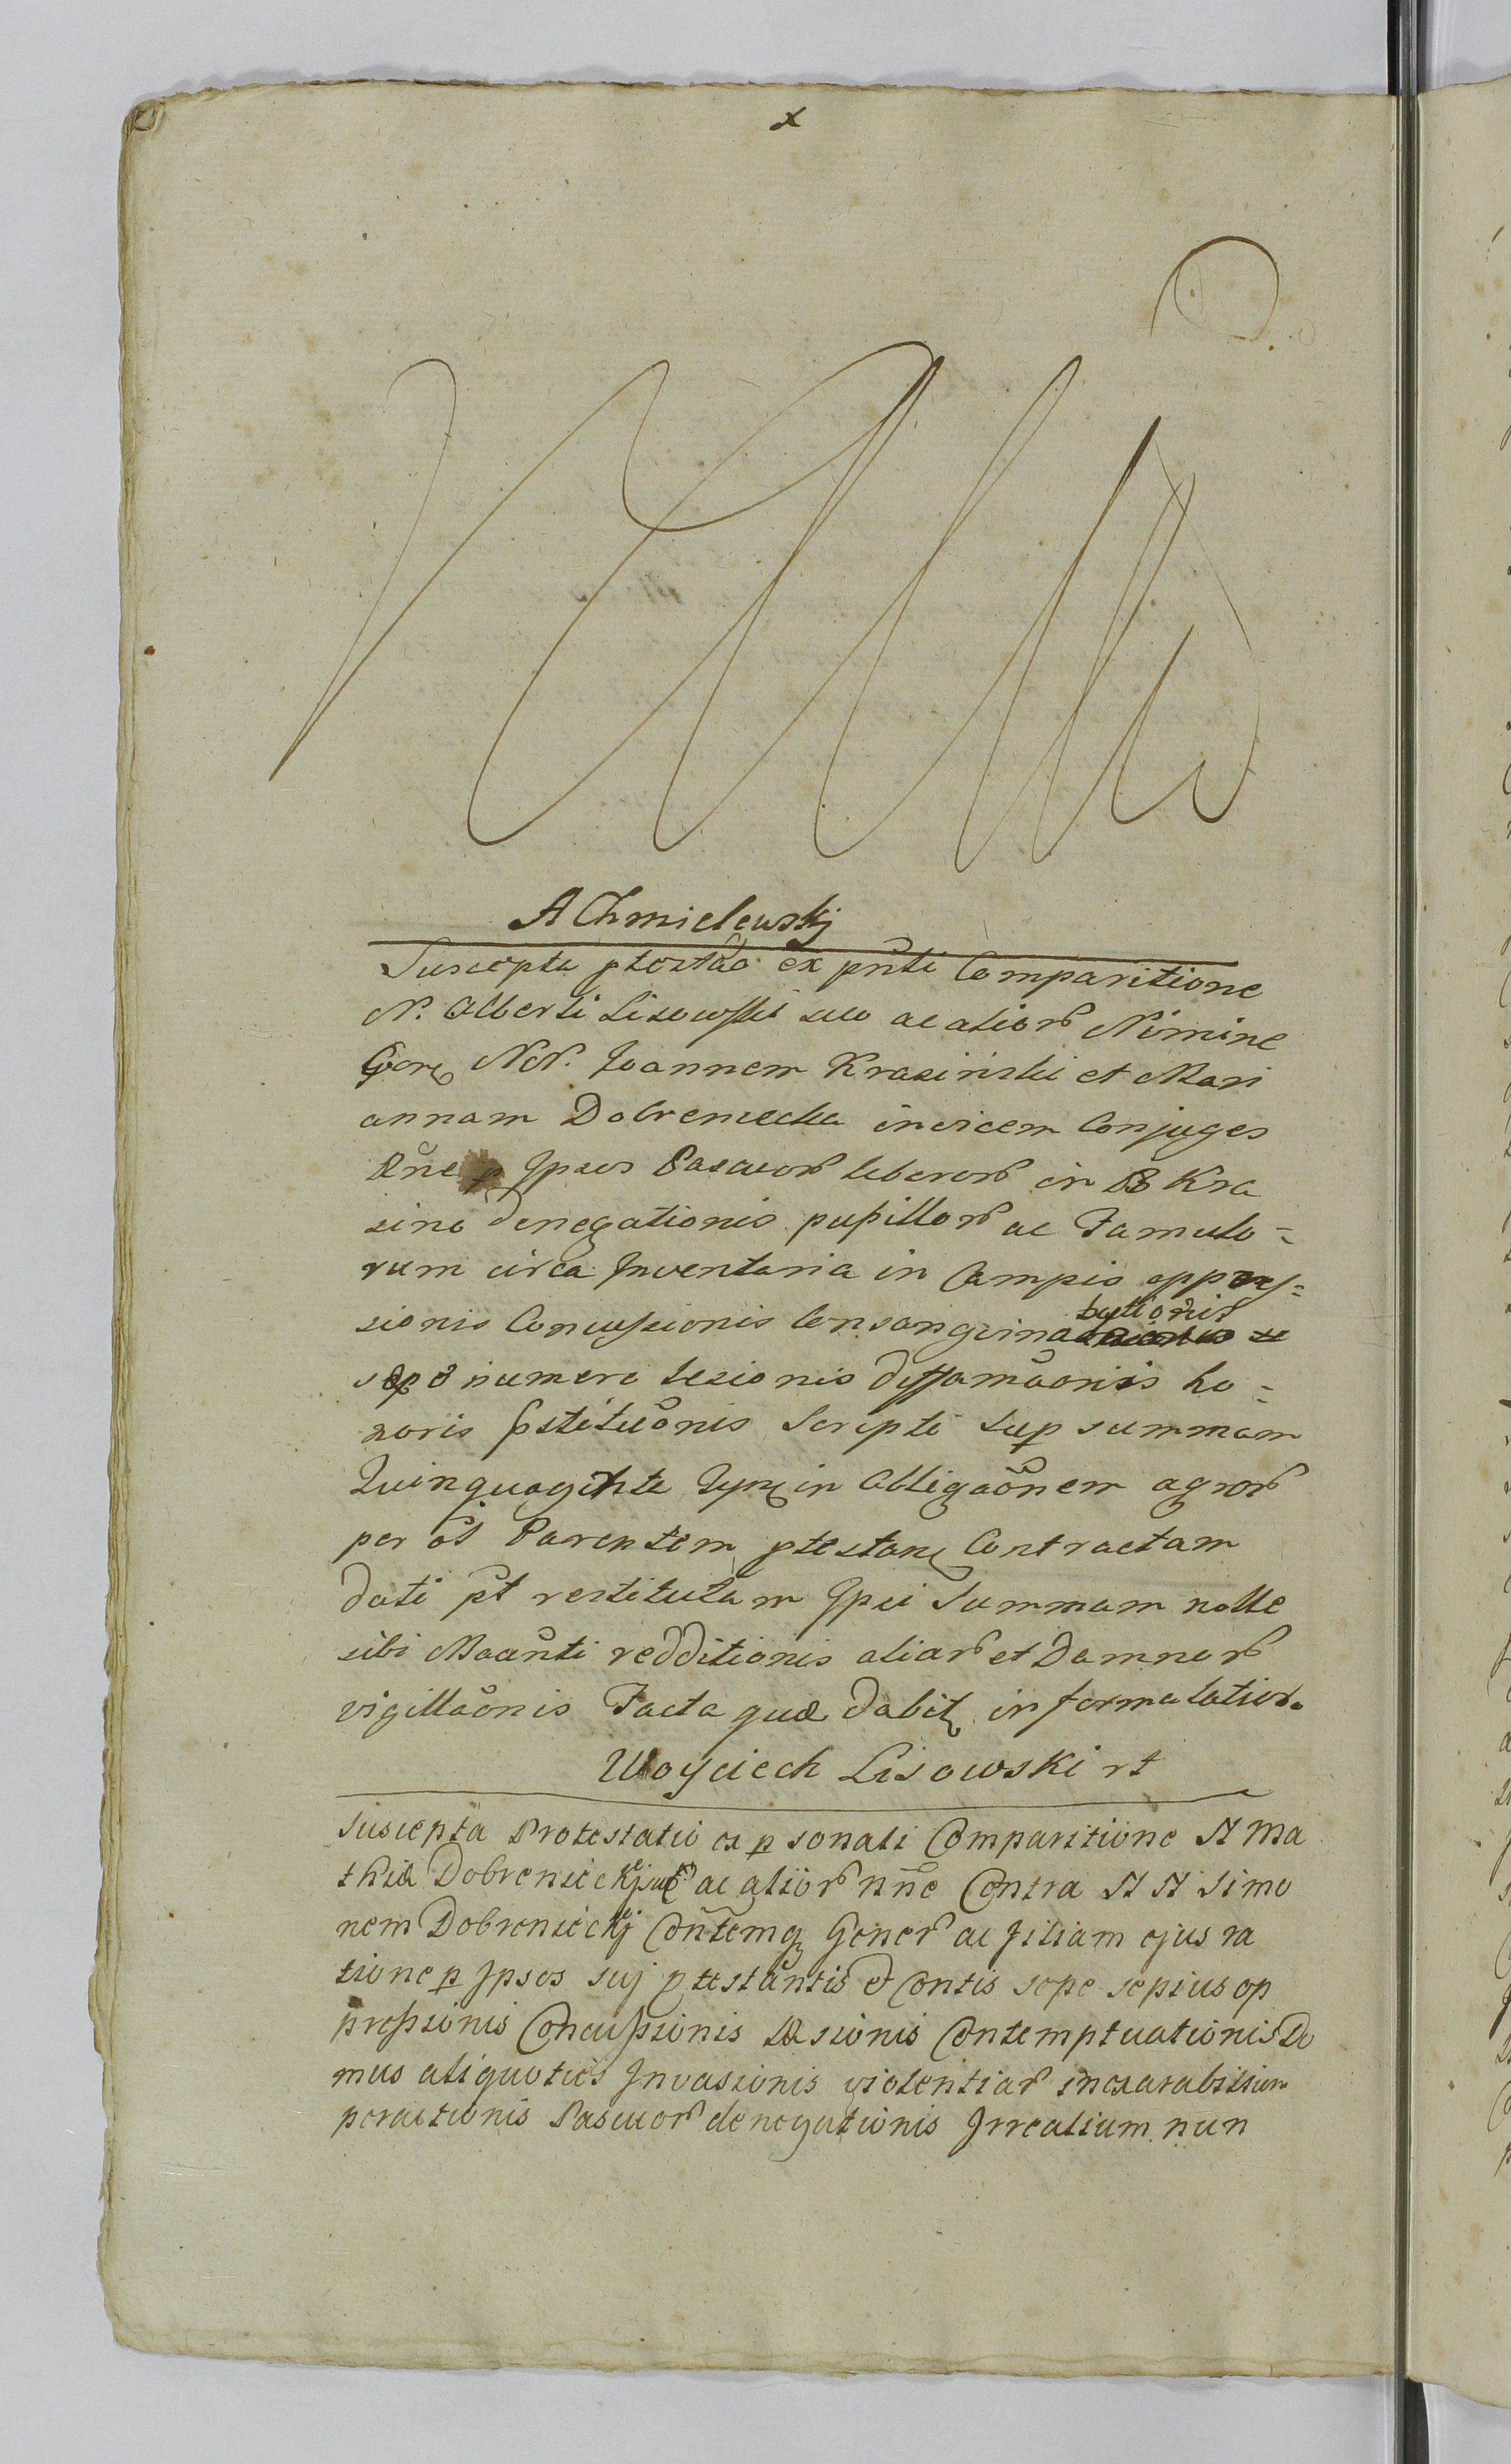 x
A Chmielewskj
Suscepta ptostao ex pnti Comparitione
N. Alberti Lisowski suo ac alior Nomine
Gors NN. Joannem Krasiński et Mari
annam Dobreniecka invicem Conjuges
Rne p Ipsos Pascuor liberor in B Kra
sino denegationis pupillor ac Famulo=
rum circa Inventaria in Campis oppres=
sionis Concussionis
tustionis
sepe numero lesionis diffamaonis ho=
noris pstituonis Scripti sup summam
Quinquaginta in Obligaonem agror
per ol Parentem ptestans Contractam
dati pt restitutam Ipsi Summam nolle
sibi redditionis aliar et Damnor
vigillaonis Facta quæ dabit in forma latior.
Woyciech Lisowski rt
Suscepta Protestatio ex p sonali Comparitione N Ma
thiæ Dobrenieckj suo ac alior nne Contra N N Simo
nem Dobrenieckj Contemq Gener ac filiam ejus ra
tione p Ipsos suj ptestantis et Contis sepe sepius op
pressionis Concussionis læsionis Contemptuationis Do
mus aliquoties Invasionis violentiar inexarabilium
peractionis Pascuor denegationis Irrealium nun